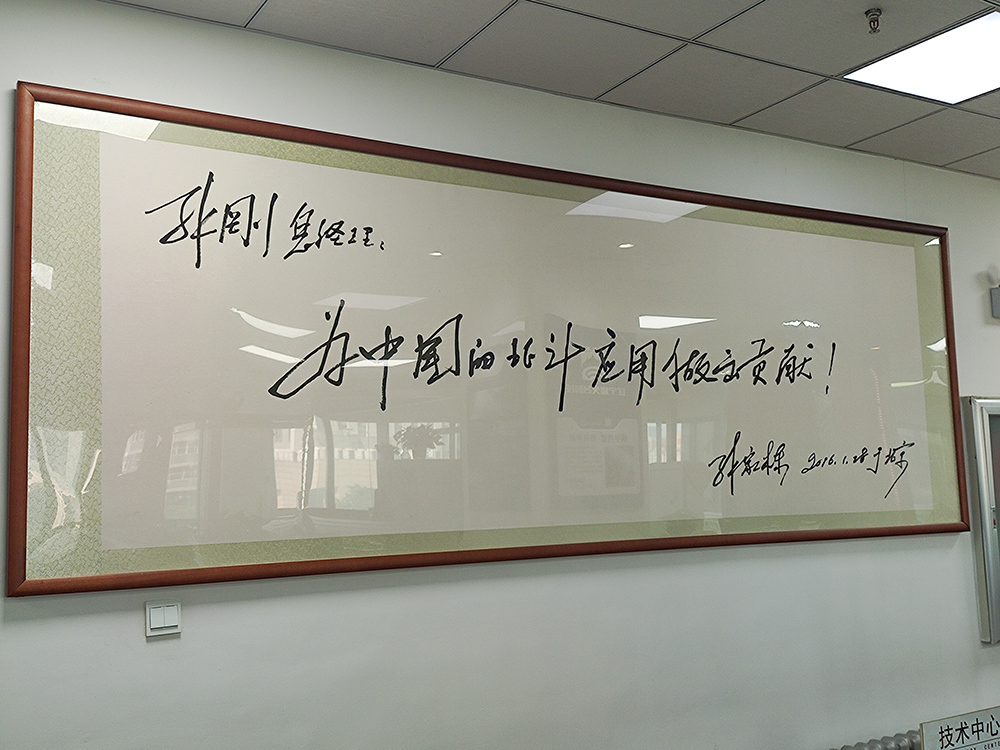 张刚总经理：
为中国的北斗应用做出贡献！
孙家栋 2016.1.28于北京
技术中心